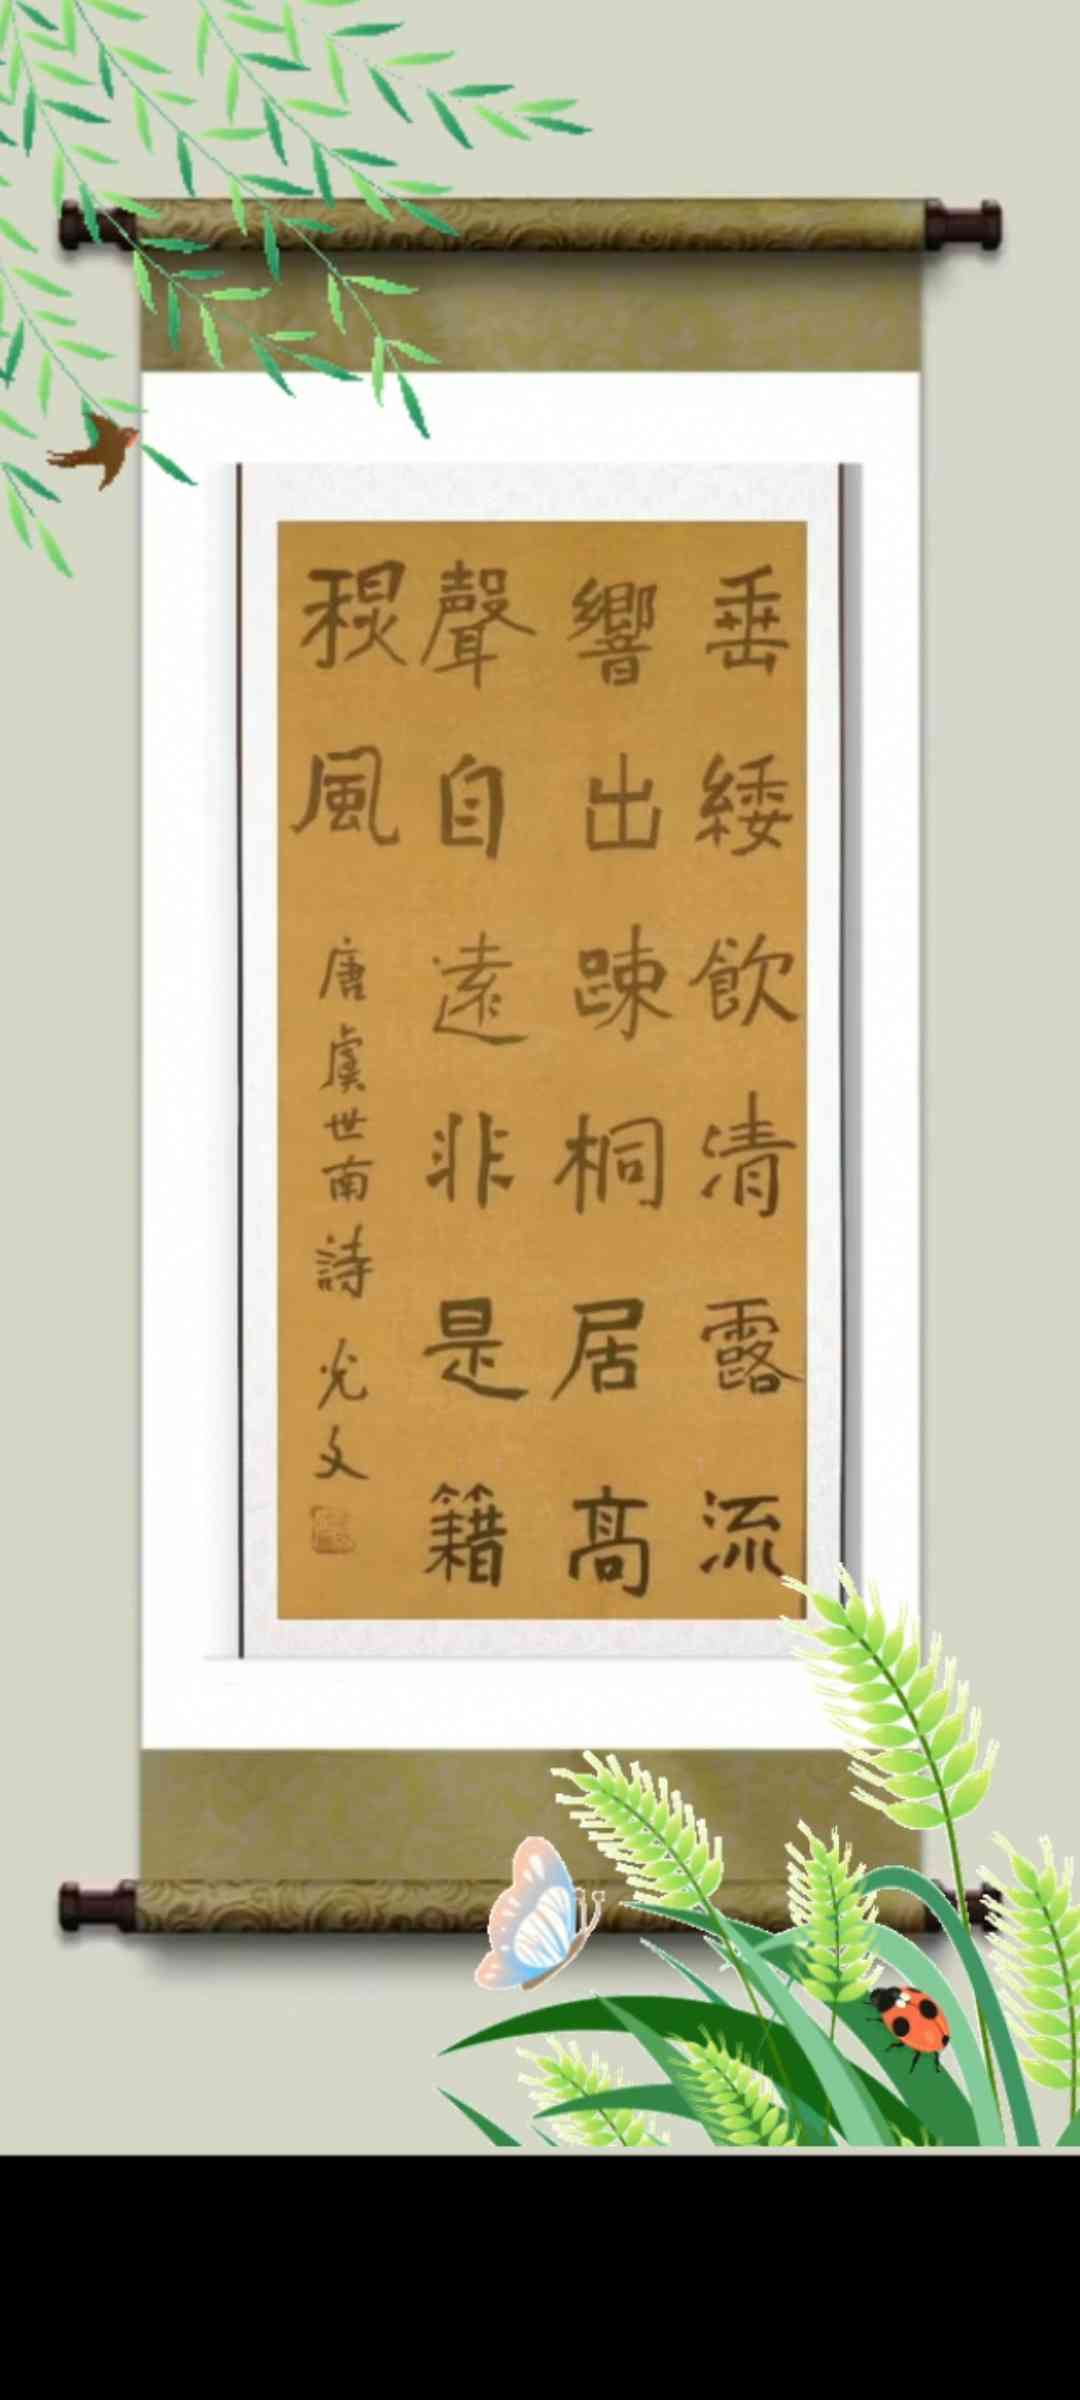 垂緌飲清露流
響出踈桐居高
聲自遠非是籍
秋風
唐虞世南詩 光文